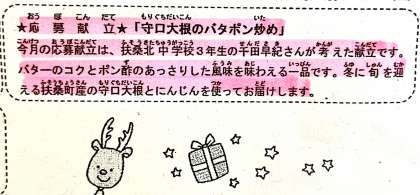 ★応募献立★「守口大根のバタポン炒め」
今月の応募献立は、扶桑北中学校３年生の千田早紀さんが考えた献立です。
バターのコクとポン酢のあっさりした風味を味わえる一品です。冬に旬を迎
える扶桑町産の守口大根とにんじんを使ってお届けします。